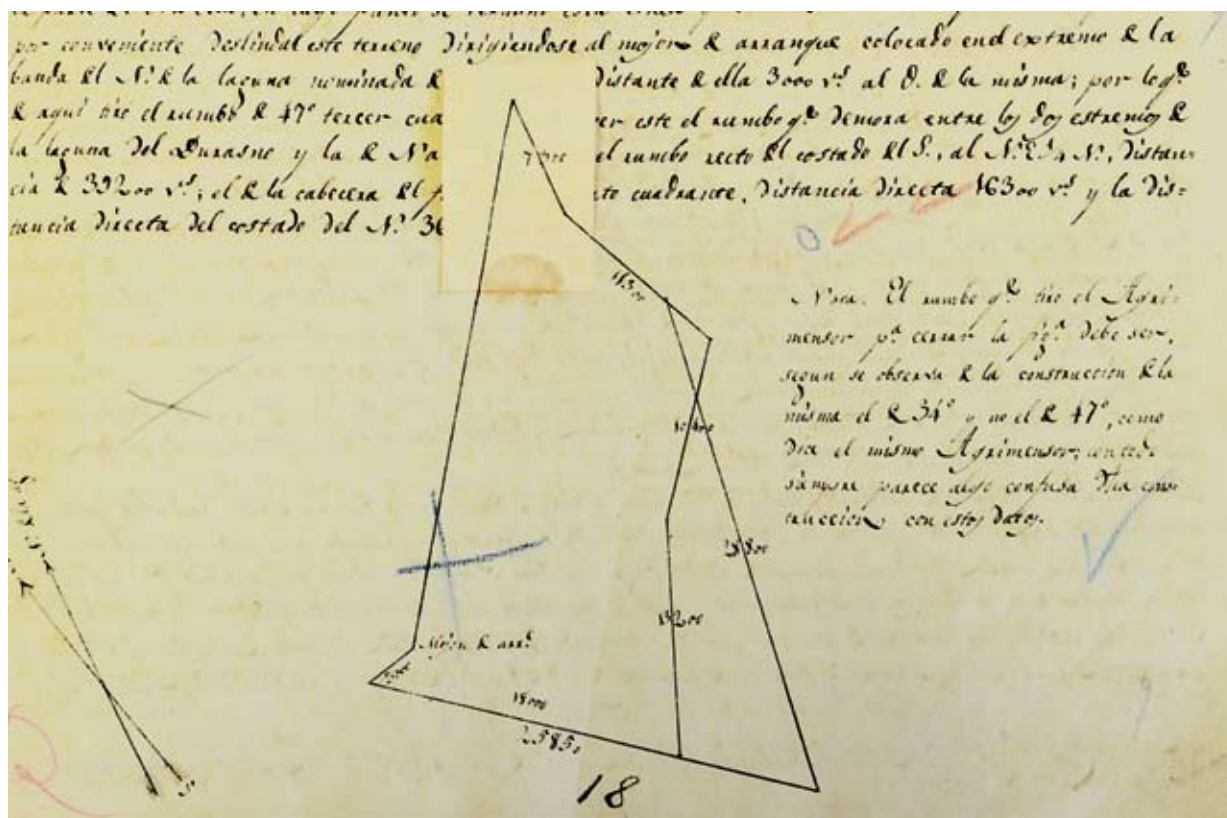 por conveniente Deslindal este terreno Dirigiendose al mojon & arranque colocado en el extremo & la
banda el N.º & la laguna nominada & Distante & ella 3000 v.s al O. & la misma; por lo q.e
& aqui tiro el rumbo & 47º tercer cua er este el rumbo q.e Demora entre los dos estremos &
la laguna Del Durasno y la & Na el rumbo recto el costado el S., al Distan-
cia & 39200 v.s; el & la cabecera el to cuadrante, Distancia Directa 16300 v.s y la Dis=
tancia Directa del costado del N.º 36
Nota. El rumbo q.e tiro el Agri-
mensor p.a cerrar la fig.a Debe ser,
segun se observa & la construccion & la
misma el & 34º y no el & 47º, como
Dice el mismo Agrimensor; con todo
siempre parece algo confusa la cons-
truccion con estos Datos.
11300
10400
13200
Mojon & arr.e
18000
25850
18